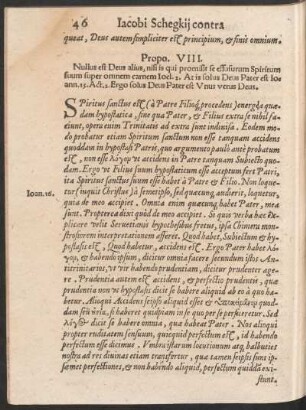 46 Iacobi Schegkij contra
queat, Deus autem simpliciter est principium, & finis omnium.
Propo. VIII.
Nullus est Deus alius, nisi is qui promisit se effusurum Spiritum
suum super omnem carnem Ioel. 2. At is solus Deus Pater est Io
ann. 15. Act. 2. Ergo solus Deus Pater est Vnus verus Deus.
SPiritus sanctus est (à Patre Filioq́; procedens)
dam hypostatica, sine qua Pater, & Filius extra se nihil fa-
ciunt, opera enim Trinitatis ad extra sunt indivisa. Eodem mo-
do probatur etiam Spiritum sanctum non esse tanquam accidens
quoddam in hypostasi Patris, quo argumento paulò antè probavi-
mus τὸν λόγον, non ut accidens in Patre tanquam Subiecto quo-
dam. Ergo ut Filius suum hypostaticum esse acceptum fert Patri,
ita Spiritus sanctus suum esse habet à Patre & Filio. Non loque-
Ioan. 16. tur (inquit Christus) à semetipso, sed quæcunq́; audierit, loquetur,
quia de meo accipiet. Omnia enim quæcunq́; habet Pater, mea
sunt. Propterea dixi quòd de meo accipiet. Si quis verba hæc Ex-
plicare velit Servetianis hypothesibus fretus, ipsa Chimera mon-
strosiorem interpretationem afferet. Quod habet, Subiectum & hy-
postasis est, Quod habetur, accidens est. Ergo Pater habens λό-
γον, erit hypostasis, & omnia facere secundum istos An-
titrinitarios, ut vir habendo prudentiam, dicitur prudenter age-
re. Prudentia autem est accidens, & perfectio prudentis, quæ
prudentia non ut hypostasis dicit se habere aliquid ab eo à quo ha-
betur. Alioqui Accidens seipso aliquid esset &
dam si haberet quidpiam in se quo per se perficeretur. Sed
λόγος dicit se habere omnia, quæ habeat Pater. Nos aliinqui
propter tenuitatem sensuum, quicquid perfectum est, id habendo
perfectum esse dicimus. Vnde istarum locutionum arg. balbuties
nostra ad res divinas etiam transfertur, quæ tamen seipsis sunt ip-
sæmet perfectiones, & non habendo aliquid, perfectum quidda exi-
stunt.